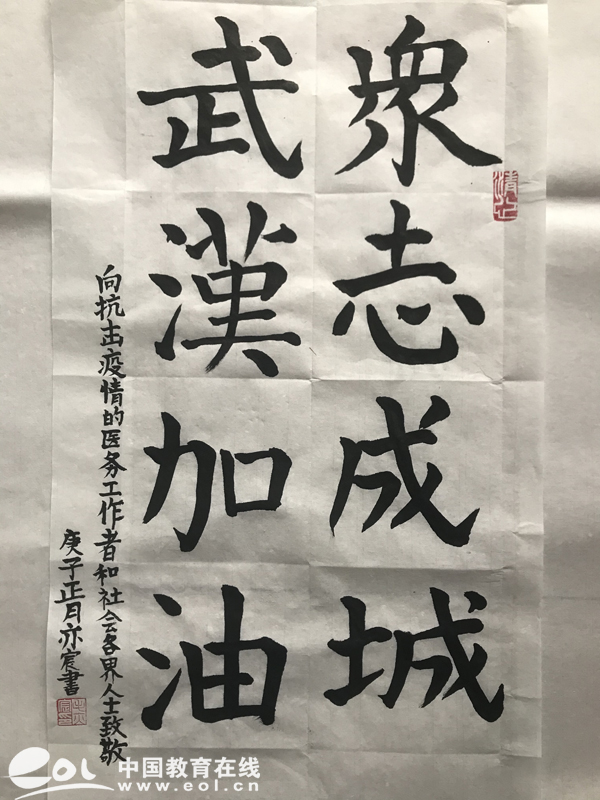 眾志成城
武漢加油
向抗击疫情的医务工作者和社会各界人士致敬
庚子正月亦宸書
eol 中国教育在线
www.eol.cn